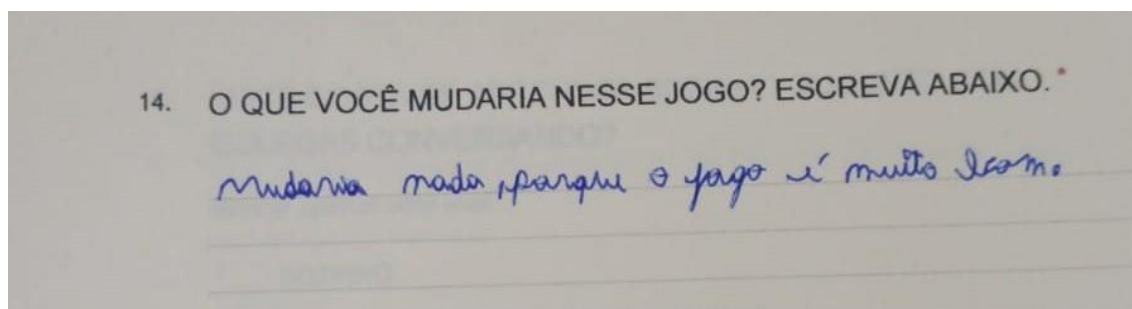 14. O QUE VOCÊ MUDARIA NESSE JOGO? ESCREVA ABAIXO. *
Mudaria nada, porque o jogo é muito bom.